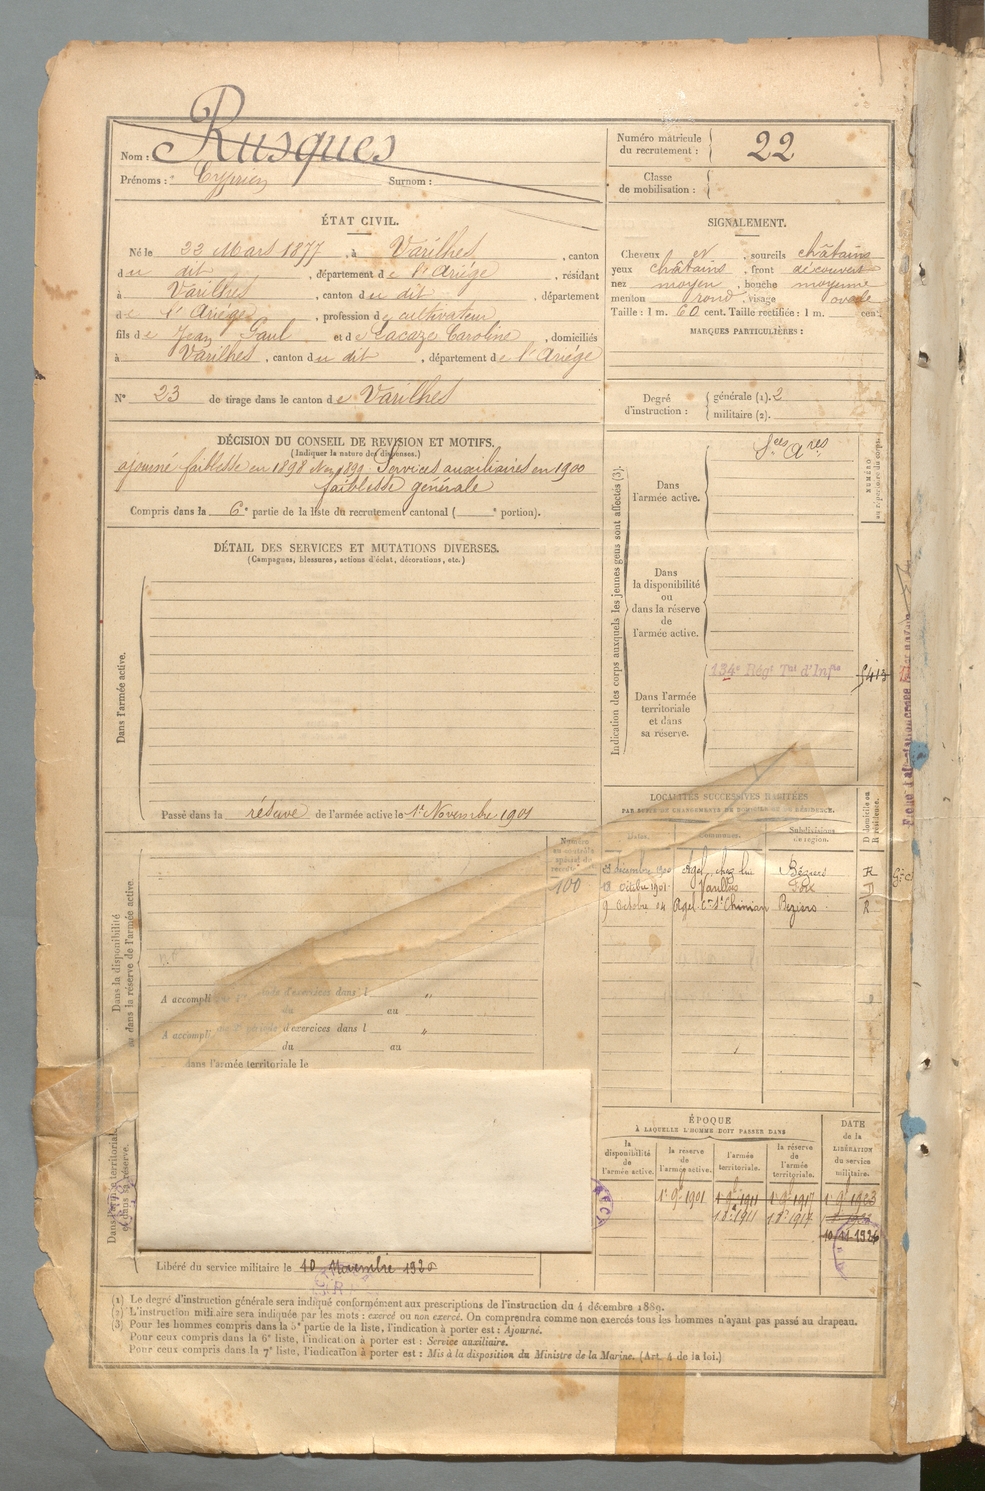 Nom : Rusques
Prénoms : Cyprien Surnom :
Numéro matricule du recrutement : 22
Classe de mobilisation :
ÉTAT CIVIL.
Né le 22 Mars 1877, à Varilhes, canton
du dit, département de l'Ariège, résidant
à Varilhes, canton du dit, département
de l'Ariège, profession de cultivateur
fils de Jean Paul et de Lacaze Caroline, domiciliés
à Varilhes, canton du dit, département de l'Ariége
N° 23 de tirage dans le canton de Varilhes
SIGNALEMENT.
Cheveux et, sourcils châtains
yeux châtains, front découvert
nez moyen, bouche moyenne
menton rond, visage ovale
Taille : 1 m. 60 cent. Taille rectifiée : 1 m. cent.
MARQUES PARTICULIÈRES :
Degré d'instruction : générale (1). 2
militaire (2).
DÉCISION DU CONSEIL DE REVISION ET MOTIFS.
(Indiquer la nature des dispenses.)
ajourné faiblesse en 1898 1899 Services auxiliaires en 1900
faiblesse générale
Compris dans la 6e partie de la liste du recrutement cantonal ( e portion).
DÉTAIL DES SERVICES ET MUTATIONS DIVERSES.
(Campagnes, blessures, actions d'éclat, décorations, etc.)
Dans l'armée active.
Passé dans la réserve de l'armée active le 1er Novembre 1901
Indication des corps auxquels les jeunes gens sont affectés (3).
NUMÉRO au répertoire du corps.
Dans l'armée active.
Sces Ares
Dans la disponibilité ou dans la réserve de l'armée active.
Dans l'armée territoriale et dans sa réserve.
134e Régt Tal d'Infie
LOCALITÉS SUCCESSIVES HABITÉES
PAR SUITE DE CHANGEMENTS DE DOMICILE OU DE RÉSIDENCE.
Dates. Communes. Subdivisions de région. D domicile ou R résidence.
23 décembre 1900 Agel, chez Béziers R
18 octobre 1901 Varilhes Foix
9 Octobre 04 Agel con St Chinian Beziers R
Dans la disponibilité ou dans la réserve de l'armée active.
Numéro au contrôle spécial du recrutement
100
A accompli d'exercices dans l "
du au
A accompli d'exercices dans l "
du au
dans l'armée territoriale le
Dans l'armée territoriale et dans sa réserve.
Libéré du service militaire le 10 Novembre 1926
ÉPOQUE
À LAQUELLE L'HOMME DOIT PASSER DANS
la disponibilité de l'armée active.
la réserve de l'armée active.
l'armée territoriale.
la réserve de l'armée territoriale.
DATE de la LIBÉRATION du service militaire.
1 9bre 1901 1 9bre 1911 1 9bre 1917 1 9bre 1923
1 8bre 1911 1 8bre 1917
10/11 1926
(1) Le degré d'instruction générale sera indiqué conformément aux prescriptions de l'instruction du 4 décembre 1889.
(2) L'instruction militaire sera indiquée par les mots : exercé ou non exercé. On comprendra comme non exercés tous les hommes n'ayant pas passé au drapeau.
(3) Pour les hommes compris dans la 5e partie de la liste, l'indication à porter est : Ajourné.
Pour ceux compris dans la 6e liste, l'indication à porter est : Service auxiliaire.
Pour ceux compris dans la 7e liste, l'indication à porter est : Mis à la disposition du Ministre de la Marine. (Art. 4 de la loi.)